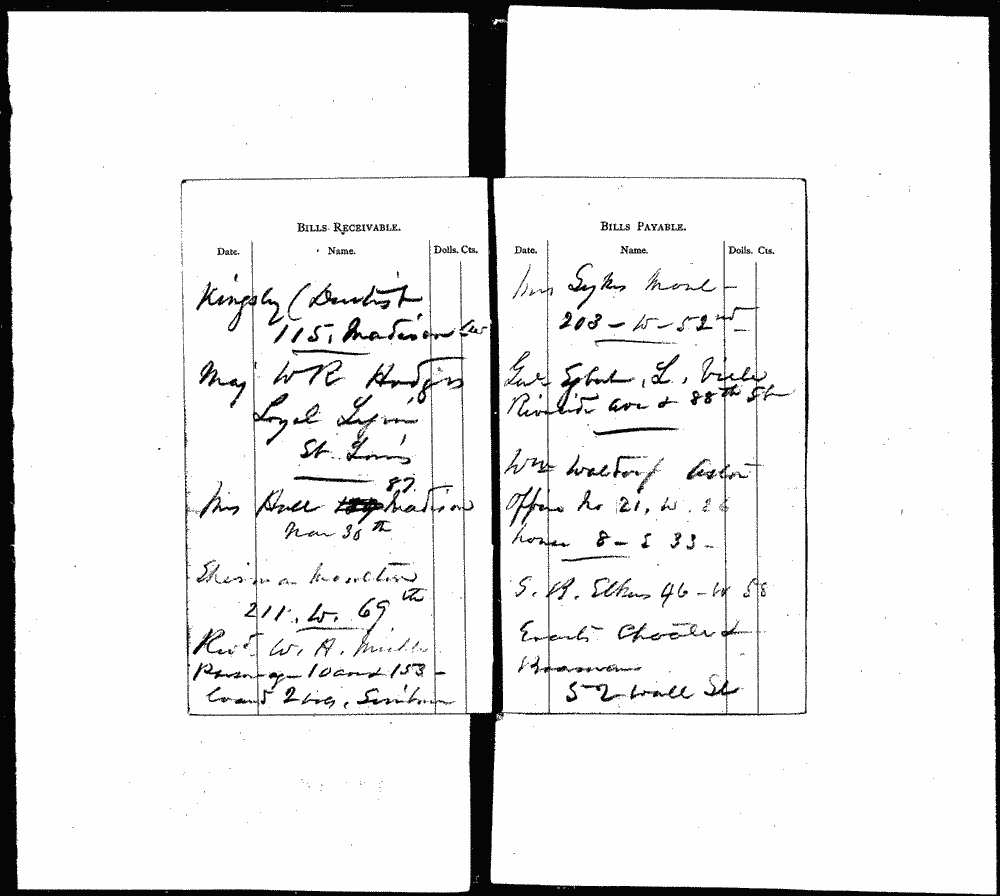 BILLS RECEIVABLE.
Date. Name. Dolls. Cts.
Kingsley (Dentist
115, Madison Ave
Maj W R Hodges
Loyal Legion
St. Louis
87
Mrs Hall Madison
Nov 30th
Sherman Moulton
211. W. 69th
Revd W. A.
Parsonage 10 and 153 -
BILLS PAYABLE.
Date. Name. Dolls. Cts.
Mrs Sykes
203 - W - 52nd
Genl Egbert, L. Viele
Riverside Ave & 88th St
Wm Waldorf Astor
Office No 21, W. 26
house 8 - E 33 -
S. B. Elkins 46 - W 58
Evarts Choate &
Beaman
52 Wall St